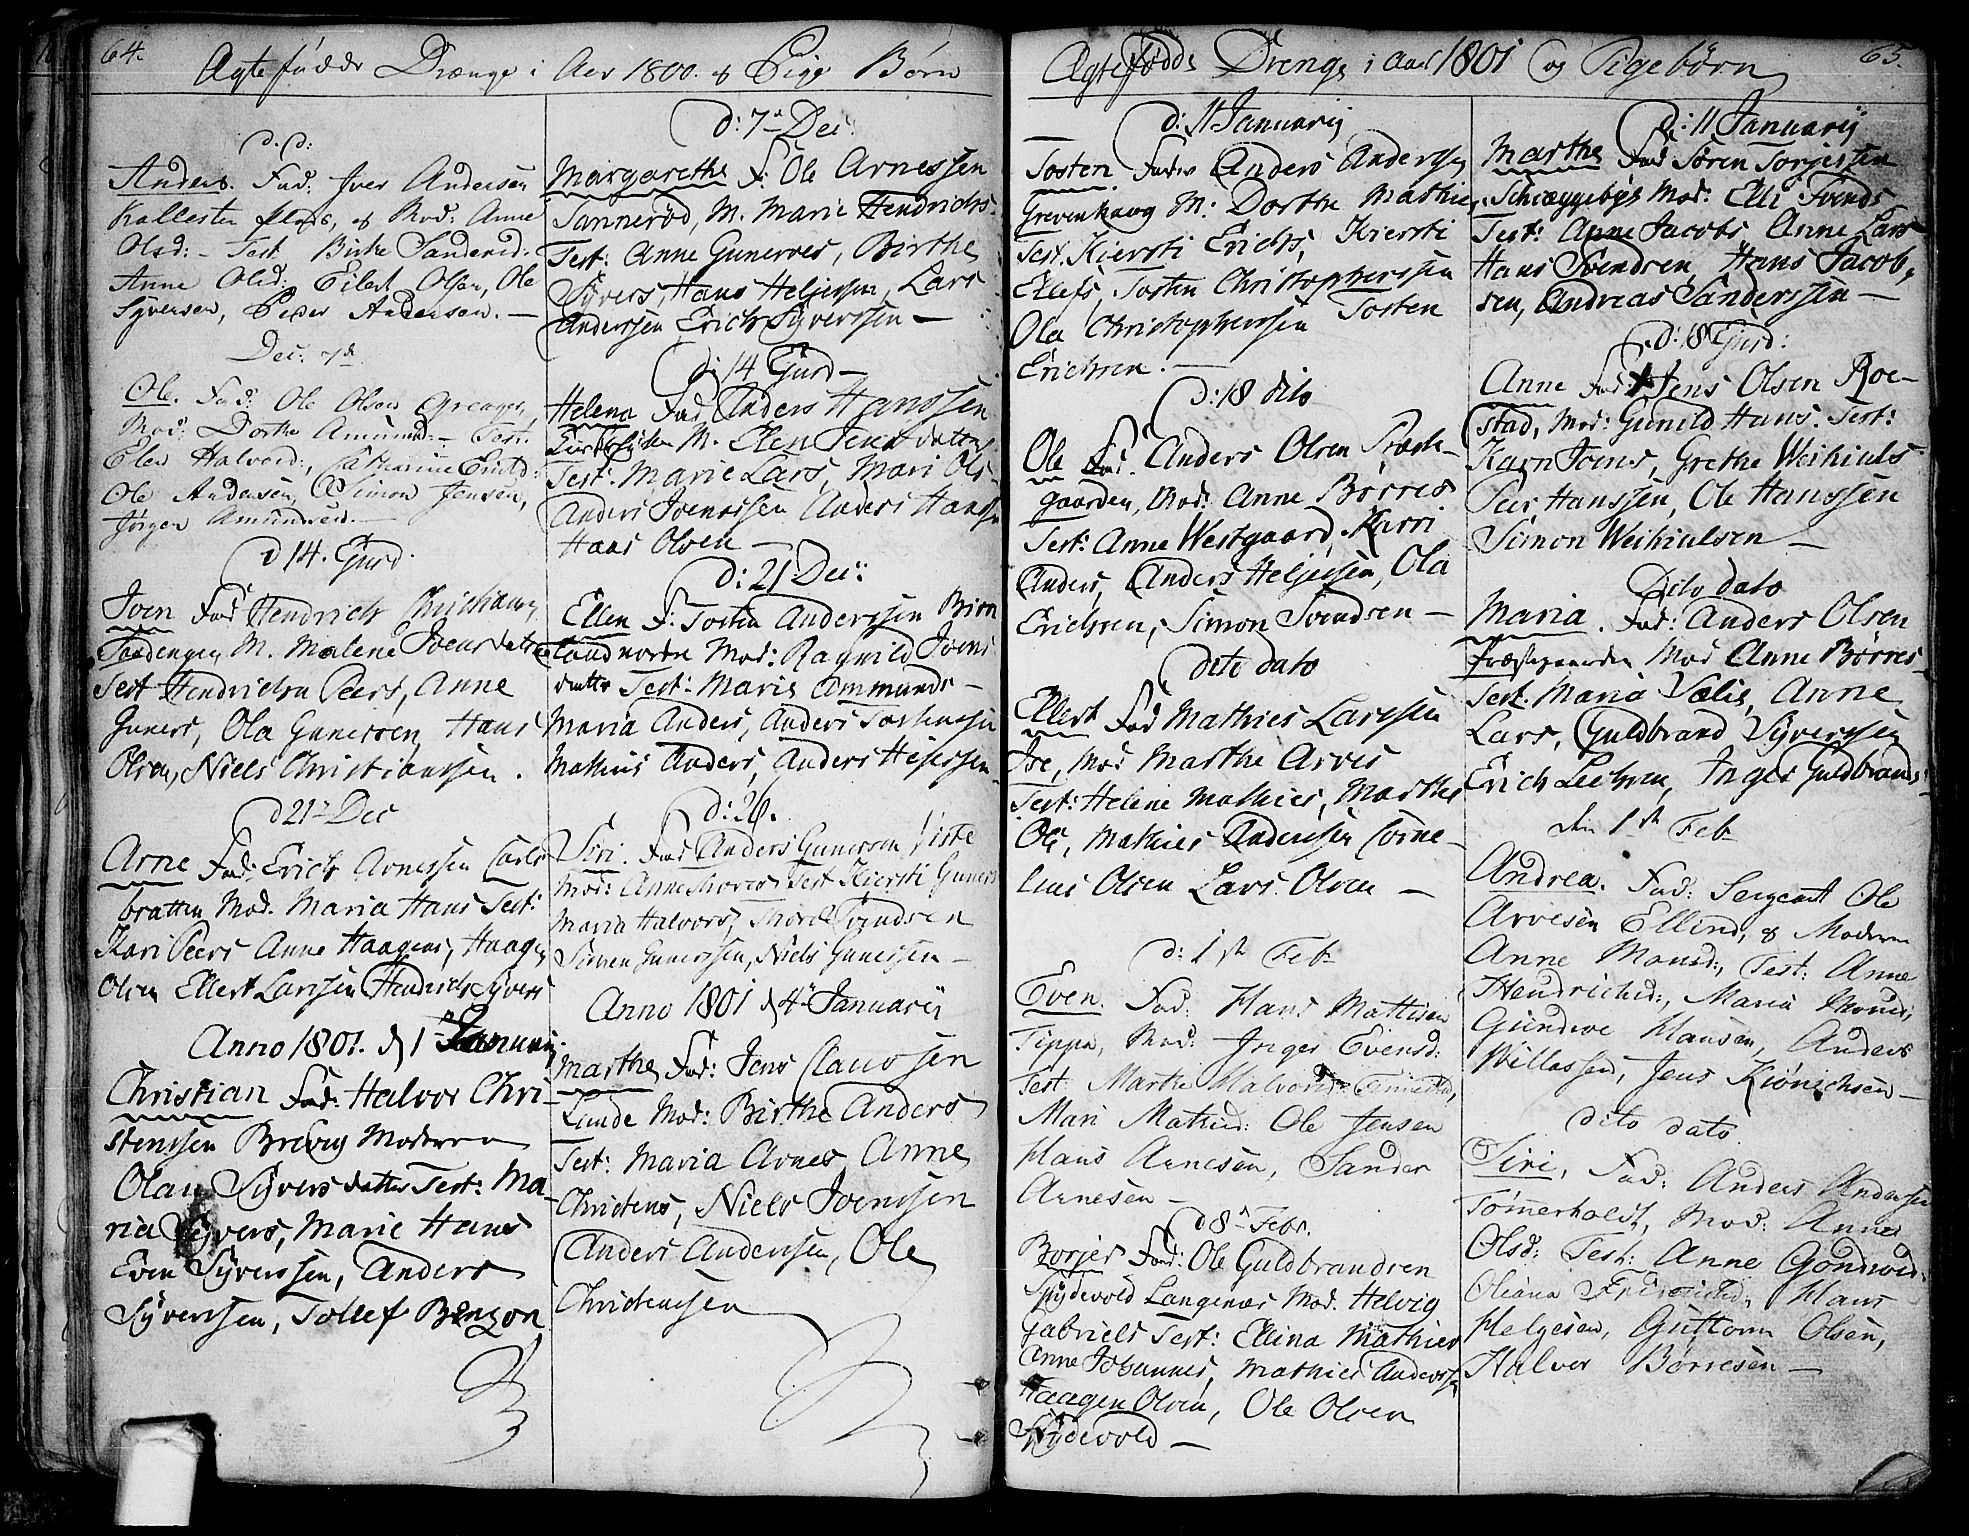 64.
Ægtefødde Drænge i Aar 1800. og Pige Børn
d. d:
Anders. Fad: Iver Andersen
Kallesten Plds, og Mod: Anne
Olsd: - Test. Birthe Sanderd:
Anne Olsd: Eilert Olsen, Ole
Syversen, Peder Andersen. —
Dec: 7de
Ole. Fad: Ole Olsen
Mod: Dorthe Amunds: - Test:
Elen Halvord:, Catharine Erichd:
Ole Andersen, Simon Jensen,
Jørgen Amundsen. —
d 14. Ejusd.
Joen Fad Hendrich Christians
M. Malene Joens datter
Test Hendrichsen Peers, Anne
Guners, Ola Gunerssen, Hans
Olsen, Niels Christianssen.
d 21de Dec
Arne Fad: Erich Arnessen Carls
bratten Mod. Maria Hans Test:
Kari Peers Anne Haagens, Haagen
Olsen Ellert Larssen Hendrich Syvers
Anno 1801. d 1 Januarij
Christian Fad: Halvor Chri-
stenssen Brevig Moderen
Olau Syvers datter Test: Ma-
ria Syvers, Marie Hans
Even Syverssen, Anders
Syverssen, Tollef Benzon
d: 7de Dec:
Margarethe F: Ole Arnessen
Tannerød, M. Marie Hendrichs.
Test: Anne Guneroes, Birthe
Syvers, Hans Heljessen, Lars
Anderssen Erich Syverssen —
d: 14 Ejusd —
Helena Fad Anders Hanssen
M. Elen Jens datter
Test: Marie Lars, Mari Ols
Anders Joenssen Anders Hanssen
Haas Olsen —
d: 21 Dec:
Ellen F: Tosten Anderssen Biørn
land nordre Mod: Ragnild Joens
datter Test: Maris Ammunds —
Maria Anders, Anders Tostenssen
Mathias Anders, Anders Hejessen
d: 26.
Siri. Fad Anders Gunerson
Mod: Anne Test Kiersti Guners
Maria Halvors, Thore Svendsen
Simen Gunerssen, Niels Gunerssen —
Anno 1801 d 4de Januarij
Marthe Fad: Jens Claussen
Lunde Mod: Birthe Anders
Test: Maria Arnes Anne
Christens, Niels Joenssen
Anders Anderssen, Ole
Christenssen
65.
Ægtefødde Drenge i Aar 1801 og Pigebørn
d: 11 Januarij
Tosten. Fader Anders Anderssen
Grevenhaug M: Dorthe Mathies
Test. Kiersti Erichs, Kiersti
Ellefs, Tosten Christopherssen
Ola Christopherssen Tosten
Erichsen. —
d: 18 dito
Ole Fad. Anders Olsen Præste-
gaarden, Mod. Anne Børres
Test: Anne Westgaard, Karri
Anders, Anders Heljessen, Ola
Erichsen, Simon Svendsen —
dito dato
Ellert Fad Mathies Larssen
Ire, Mod Marthe Arves
Test: Helene Mathies, Marthe
Ols, Mathies Anderssen Corne-
lius Olsen Lars Olsen —
d: 1ste Feb
Even. Fad: Hans Mattisen
Tippen, Mod: Inger Evensd:
Test: Marthe Halvord:
Mari Mathisd: Ole Jensen
Hans Arnesen, Sander
Arnesen —
d 8de Febr.
Borjer Fad: Ole Guldbrandsen
Spydevold Langenæs Mod. Helvig
Gabriels Test: Ellina Mathies
Anne Johannes, Mathies Anderssen
Haagen Olsen, Ole Olsen
Spydevold —
d: 11 Januarij
Marthe Fad Søren Torjessen
Schiæggebye Mod: Elli Svends
Test: Anne Jacobs Anne Lars
Hans Svendsen, Hans Jacob-
sen, Andreas Sanderssen —
d: 18 Ejusd:
Anne Fad: Jens Olsen Roe-
stad, Mod: Gunild Hans. Test:
Karn Joens, Grethe Weihiuls
Peer Hanssen, Ole Hanssen
Simon Weihiulsen —
Dito dato
Maria. Fad: Anders Olsen
Præstegaarden Mod Anne Børres
Test. Maria Anne
Lars, Guldbrand Syverssen
Erich Inger Guldbrands
den 1ste Feb
Andrea. Fad: Sergeant Ole
Arvesen Ellind, & Moderen
Anne Monsd:, Test: Anne
Hendrichd:, Maria
Gundroe Hansen, Anders
Willassen, Jens Kiønichsen —
dito dato.
Siri, Fad: Anders Andersen
Tømerholdt, Mod: Anne
Olsd: Test: Anne
Oleana Hans
Helgesen, Guttorm Olsen,
Halvor Børresen —